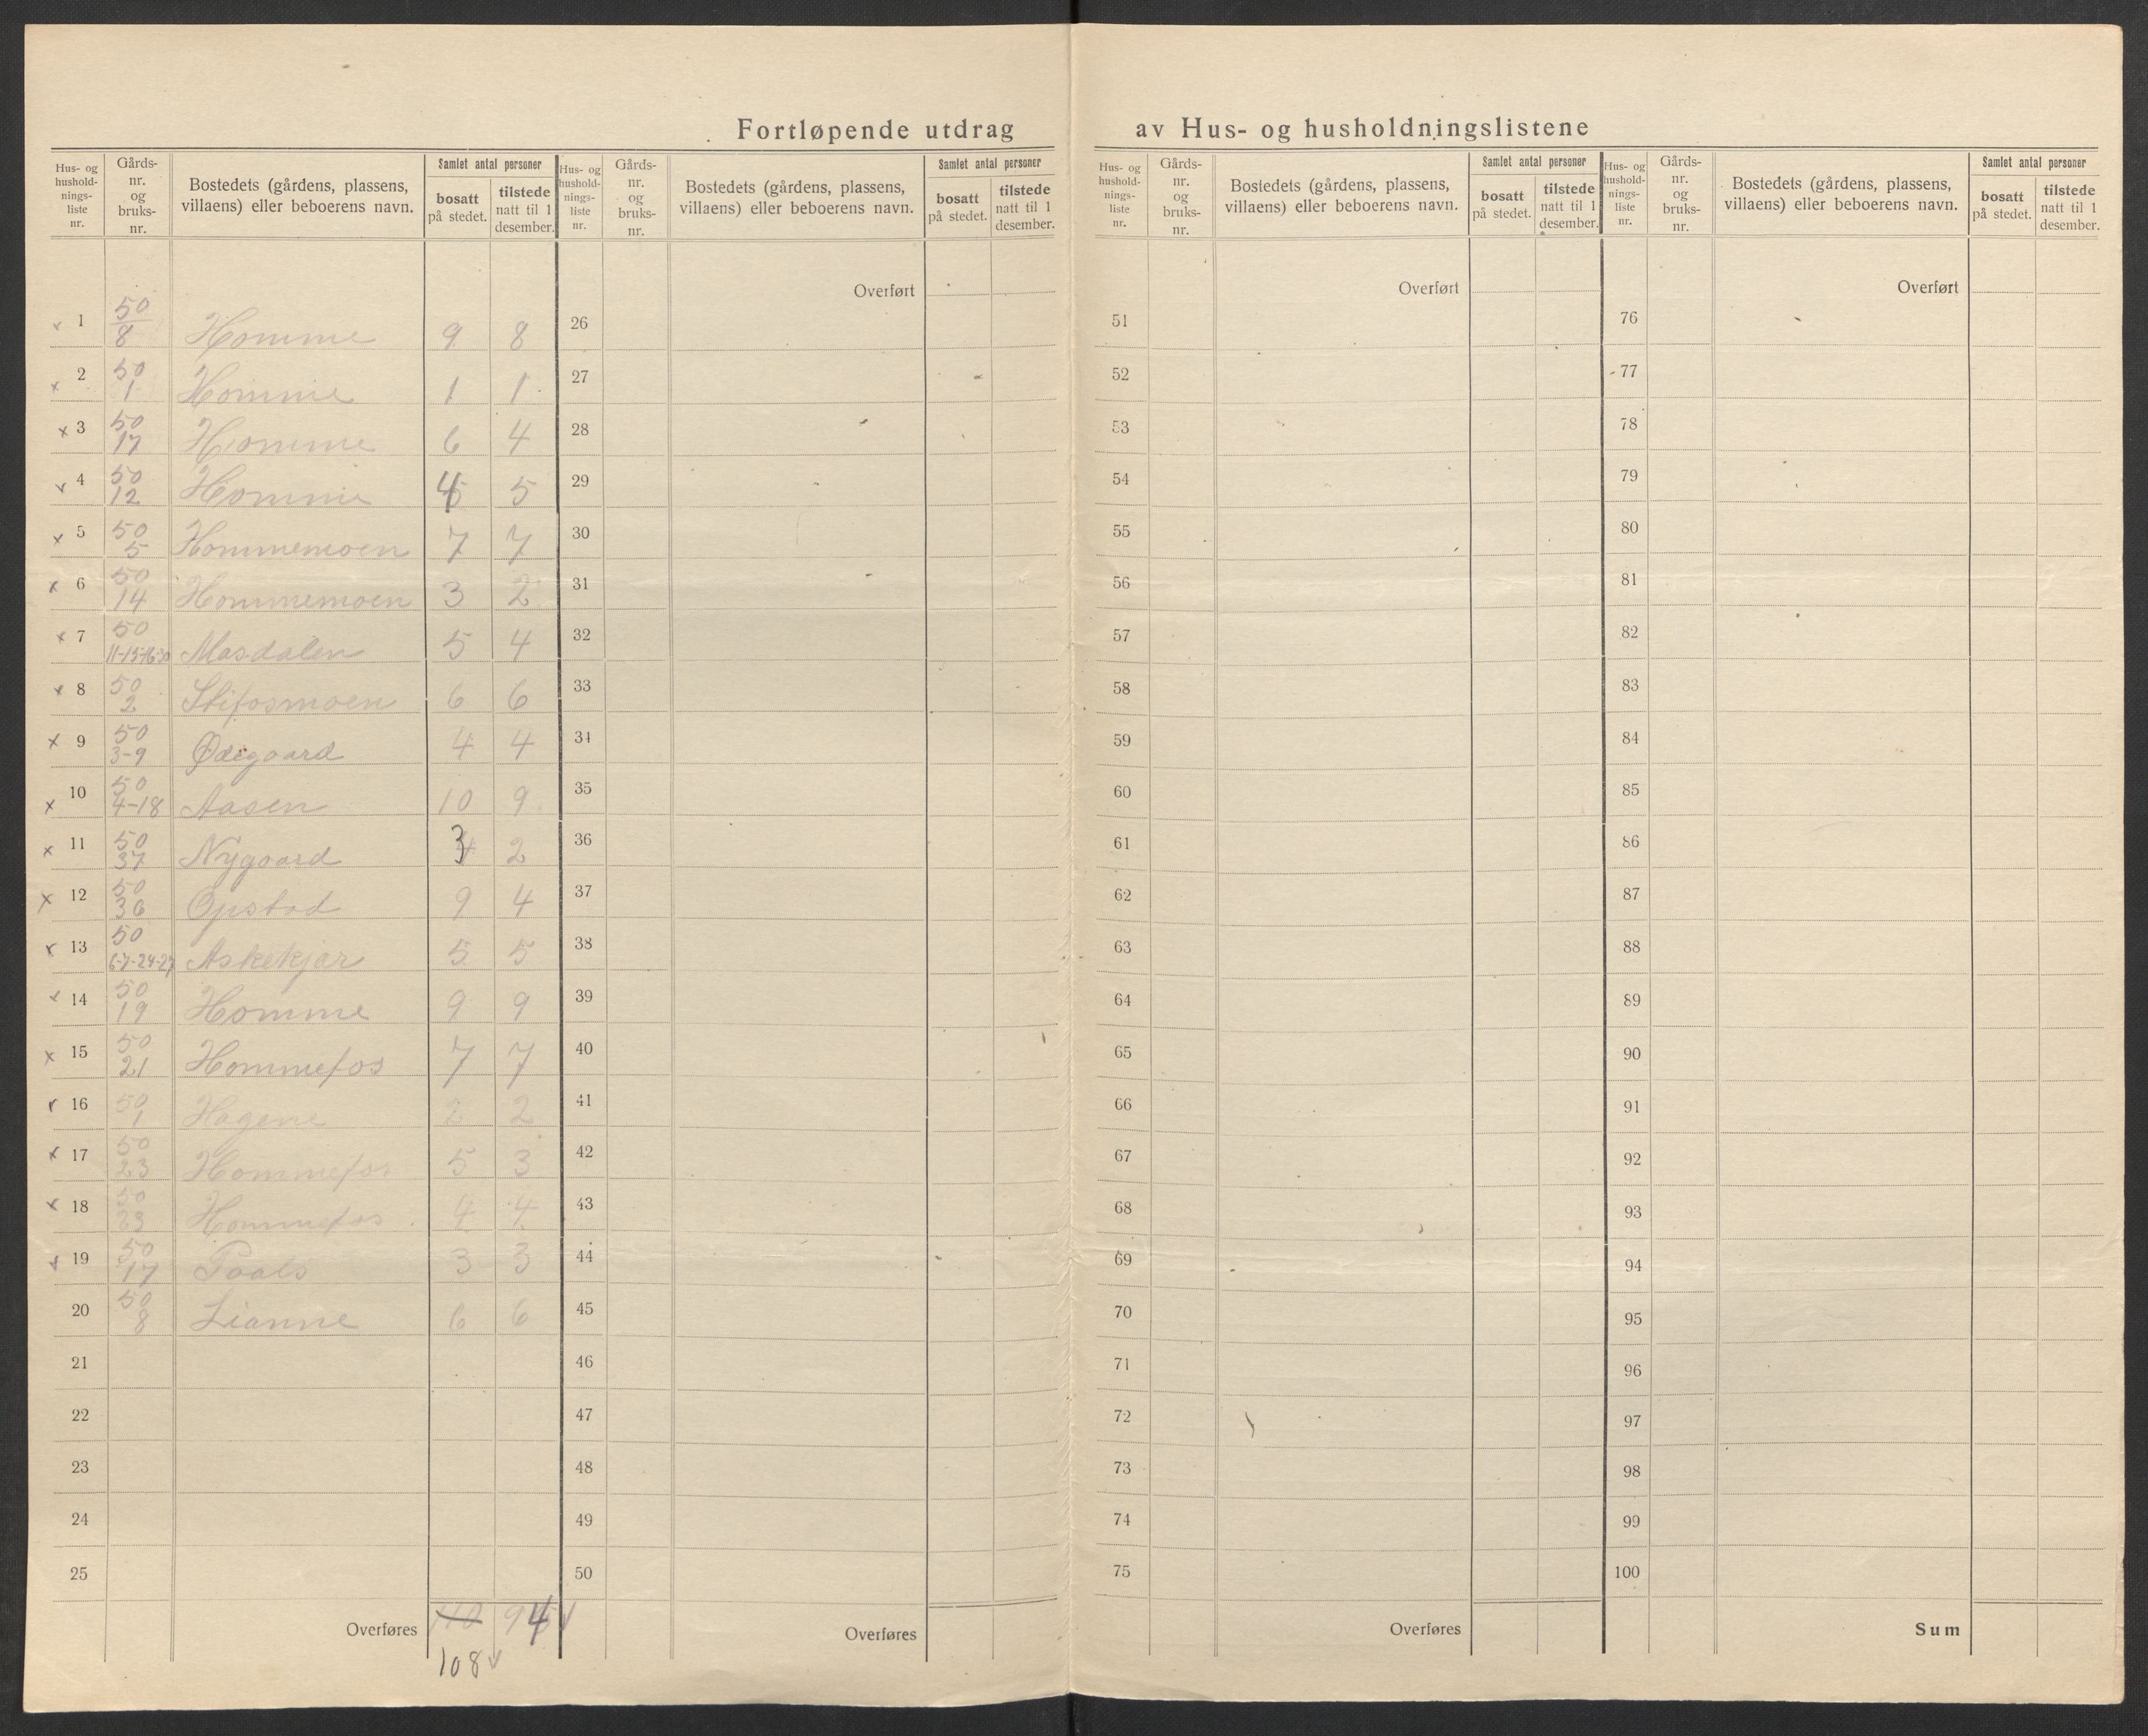 Fortløpende utdrag av Hus- og husholdningslistene
Hus- og hushold- nings- liste nr.
Gårds- nr. og bruks- nr.
Bostedets (gårdens, plassens, villaens) eller beboerens navn.
Samlet antal personer
bosatt på stedet.
tilstede natt til 1 desember.
1 50/8 Homme 9 8
2 50/1 Homme 1 1
3 50/17 Homme 6 4
4 50/12 Homme 4 5
5 50/5 Hommemoen 7 7
6 50/14 Hommemoen 3 2
7 50 Masdalen 5 4
8 50/2 Stifosmoen 6 6
9 50/3-9 Ødegaard 4 4
10 50/4-18 Aasen 10 9
11 50/37 Nygaard 3 2
12 50/36 Opstad 9 4
13 50/6-7-24-27 Askekjær 5 5
14 50/19 Homme 9 9
15 50/21 Hommefos 7 7
16 50/1 Hagene 2 2
17 50/23 Hommefos 5 3
18 50/23 Hommefos 4 4
19 50/17 Poals 3 3
20 50/8 Lianne 6 6
21
22
23
24
25
Overføres 110 94
108
Hus- og hushold- nings- liste nr.
Gårds- nr. og bruks- nr.
Bostedets (gårdens, plassens, villaens) eller beboerens navn.
Samlet antal personer
bosatt på stedet.
tilstede natt til 1 desember.
Overført
26
27
28
29
30
31
32
33
34
35
36
37
38
39
40
41
42
43
44
45
46
47
48
49
50
Overføres
Hus- og hushold- nings- liste nr.
Gårds- nr. og bruks- nr.
Bostedets (gårdens, plassens, villaens) eller beboerens navn.
Samlet antal personer
bosatt på stedet.
tilstede natt til 1 desember.
Overført
51
52
53
54
55
56
57
58
59
60
61
62
63
64
65
66
67
68
69
70
71
72
73
74
75
Overføres
Hus- og hushold- nings- liste nr.
Gårds- nr. og bruks- nr.
Bostedets (gårdens, plassens, villaens) eller beboerens navn.
Samlet antal personer
bosatt på stedet.
tilstede natt til 1 desember.
Overført
76
77
78
79
80
81
82
83
84
85
86
87
88
89
90
91
92
93
94
95
96
97
98
99
100
Sum